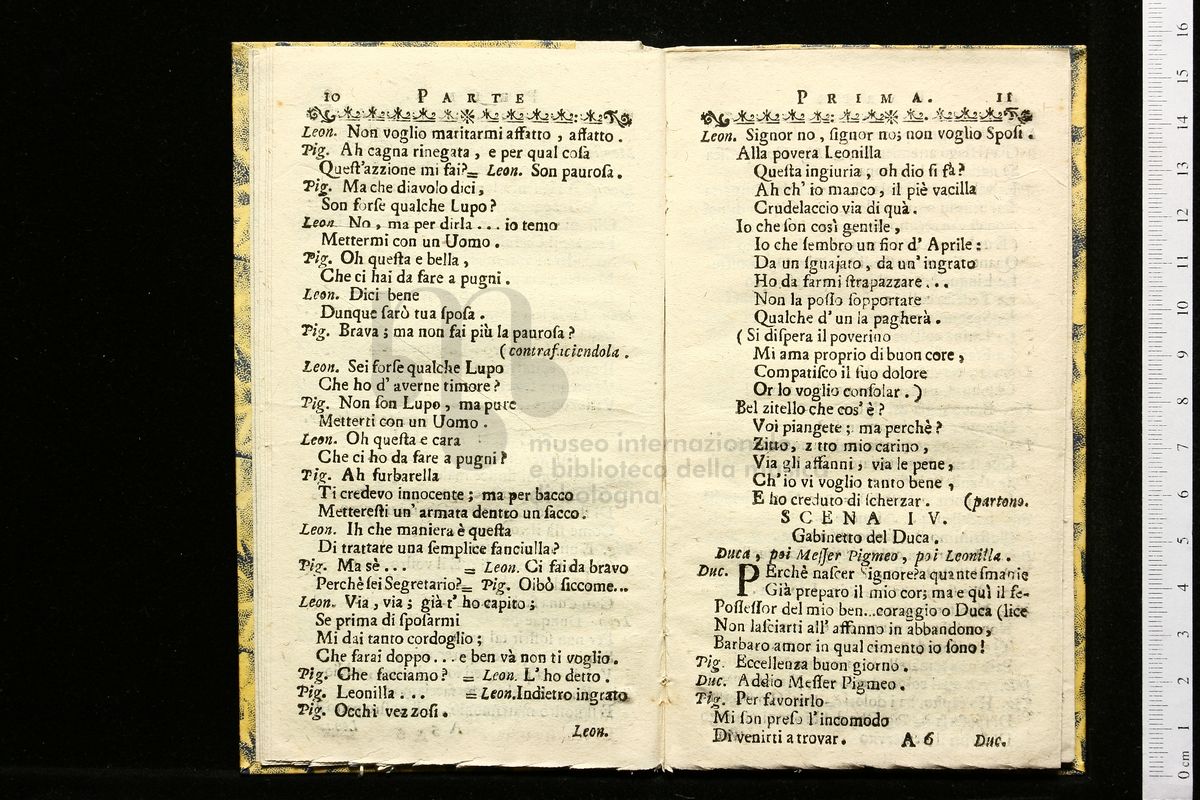 10 PARTE
Leon. Non voglio maritarmi affatto, affatto.
Pig. Ah cagna rinegata, e per qual cosa
Quest'azzione mi fai?= Leon. Son paurosa.
Pig. Ma che diavolo dici,
Son forse qualche Lupo?
Leon. No, ma per dirla... io temo
Mettermi con un Uomo.
Pig. Oh questa e bella,
Che ci hai da fare a pugni.
Leon. Dici bene
Dunque sarò tua sposa.
Pig. Brava; ma non fai più la paurosa?
(contrafaciendola.
Leon. Sei forse qualche Lupo
Che ho d'averne timore?
Pig. Non son Lupo, ma pure
Metterti con un Uomo.
Leon. Oh questa e cara
Che ci ho da fare a pugni?
Pig. Ah furbarella
Ti credevo innocente; ma per bacco
Metteresti un'armata dentro un sacco.
Leon. Ih che maniera è questa
Di trattare una semplice fanciulla?
Pig. Ma sè... = Leon. Ci fai da bravo
Perchè sei Segretario?= Pig. Oibò siccome...
Leon. Via, via; già t'ho capito;
Se prima di sposarmi
Mi dai tanto cordoglio;
Che farai doppo... e ben và non ti voglio.
Pig. Che facciamo? = Leon. L'ho detto.
Pig. Leonilla... = Leon. Indietro ingrato
Pig. Occhi vezzosi.
Leon.
PRIMA. 11
Leon. Signor no, signor no; non voglio Sposi.
Alla povera Leonilla
Questa ingiuria, oh dio si fà?
Ah ch'io manco, il piè vacilla
Crudelaccio via di quà.
Io che son così gentile,
Io che sembro un fior d'Aprile:
Da un sguajato, da un'ingrato
Ho da farmi strapazzare...
Non la posso sopportare
Qualche d'un la pagherà.
(Si dispera il poverino
Mi ama proprio di buon core,
Compatisco il suo dolore
Or lo voglio consolar.)
Bel zitello che cos'è?
Voi piangete; ma perchè?
Zitto, z tto mio carino,
Via gli affanni, via le pene,
Ch'io vi voglio tanto bene,
E ho creduto di scherzar. (partono.
SCENA IV.
Gabinetto del Duca.
Duca, poi Messer Pigmeo, poi Leonilla.
Duc. PErchè nascer Signore? a quante smanie
Già preparo il mio cor; ma e quì il fe-
Possessor del mio ben...coraggio o Duca (lice
Non lasciarti all'affanno in abbandono,
Barbaro amor in qual cimento io sono!
Pig. Eccellenza buon giorno.
Duc. Addio Messer Pigmeo.
Pig. Per favorirlo
Mi son preso l'incomodo
Di venirti a trovar. A 6 Duc.
museo internazionale
e biblioteca della musica
di bologna